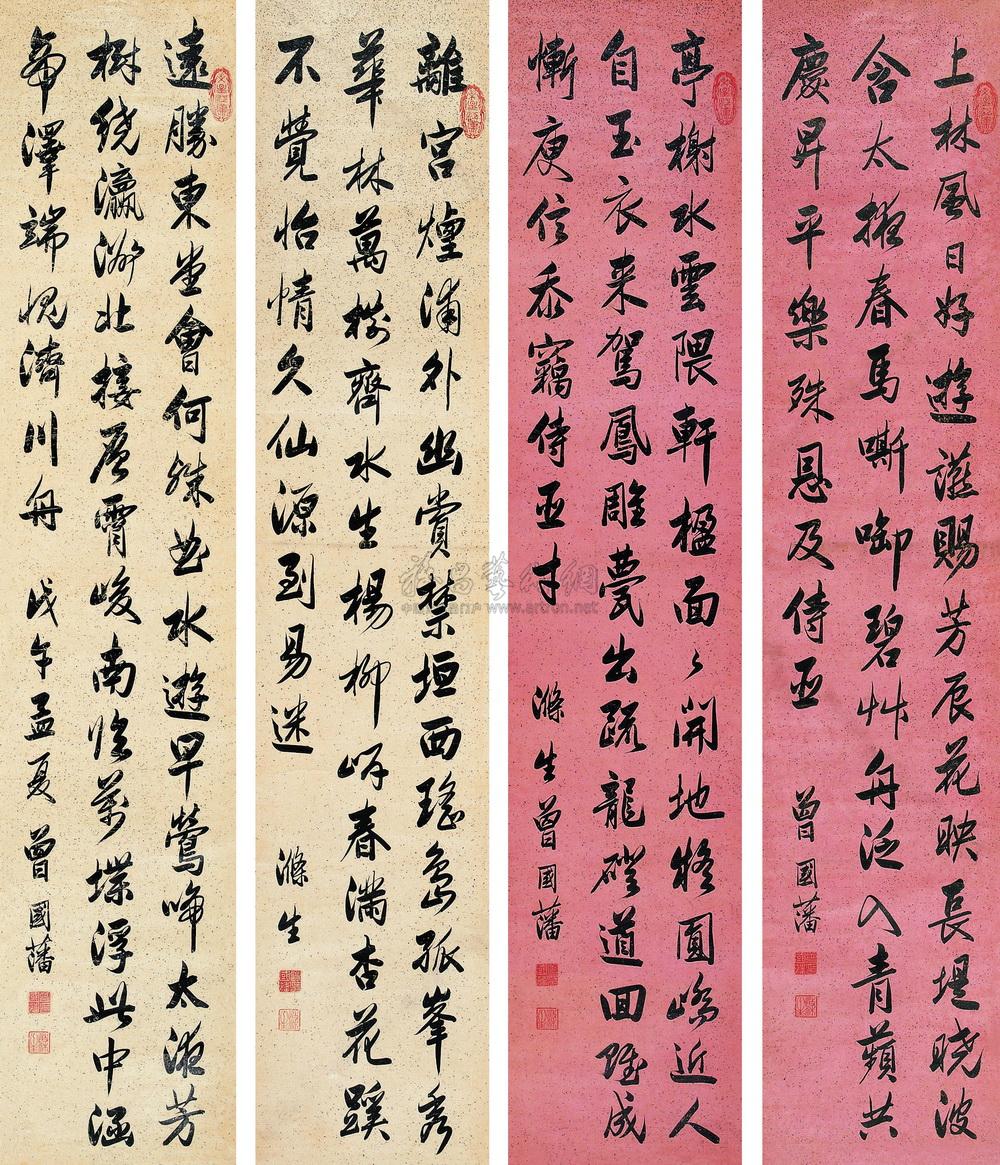 上林風日好遊讌賜芳辰花映長堤曉波
含太掖春馬嘶啣碧艸舟泛入青蘋共
慶昇平樂殊恩及侍臣
曾國藩
亭榭水雲隈軒楹面〻開地將圓嶠近人
自玉衣来駕鳳雕甍出疏龍磴道回賦成
慚庾信忝竊侍臣才
滌生曾國藩
離宮煙浦外幽賞禁垣西瑤島孤峯秀
華林萬樹齊水生楊柳岍春滿杏花蹊
不覺怡情久仙源到易迷
滌生
遠勝東堂會何殊曲水遊早鶯啼太液芳
樹繞瀛洲北樓層霄峻南 萬堞浮此中涵
帝澤端愧濟川舟
戊午孟夏
曾國藩